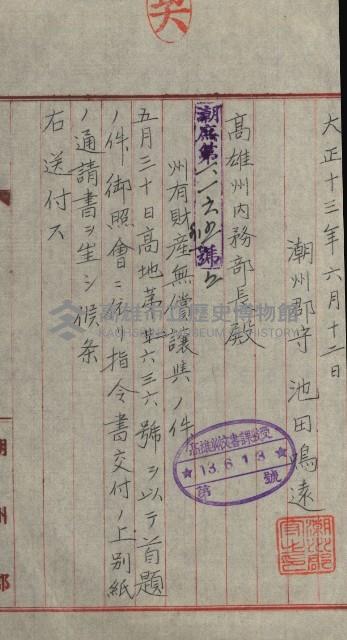 契
大正十三年六月十二日
潮州郡守 池田鳴遠
潮州郡守之印
高雄州內務部長殿
潮庶第 號ノ
州有財產無償讓與ノ件
五月三十日高地第 六三六號ヲ以テ首題
ノ件御照會ニ依リ指令書交付ノ上別紙
ノ通請書ヲ生シ候条
右送付ス
高雄州文書課收受
13.6.13
第 號
高雄市立歷史博物館
KAOHSIUNG MUSEUM OF HISTORY
潮州郡